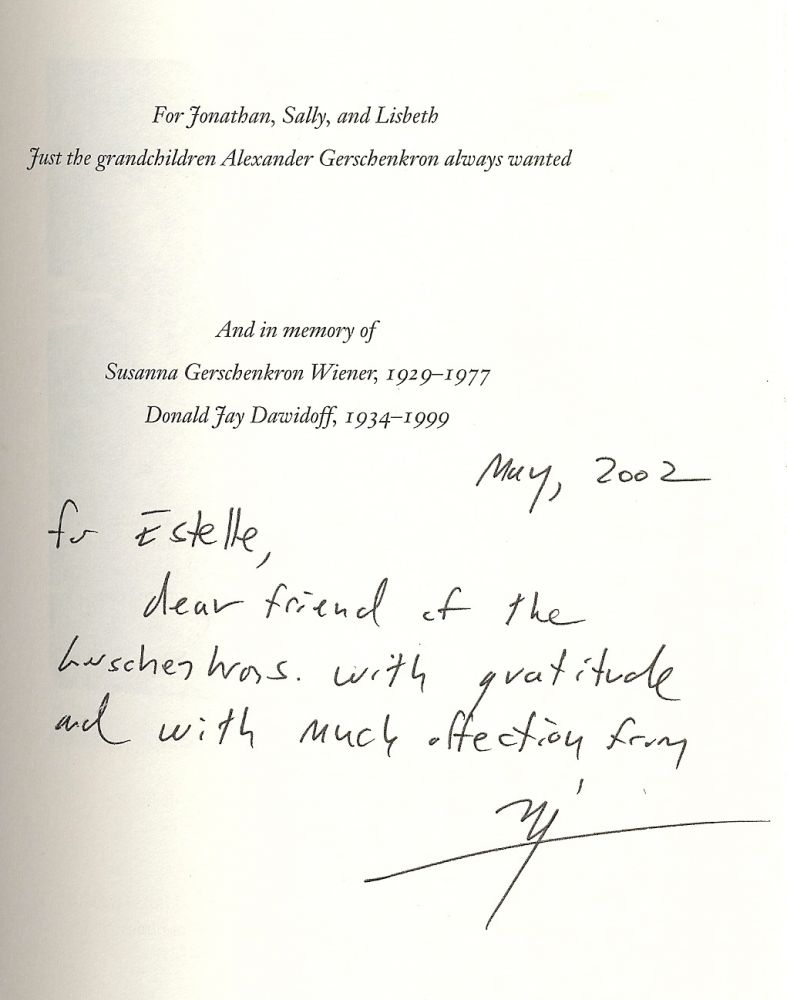 For Jonathan, Sally, and Lisbeth
Just the grandchildren Alexander Gerschenkron always wanted
And in memory of
Susanna Gerschenkron Wiener, 1929–1977
Donald Jay Dawidoff, 1934–1999
May, 2002
for Estelle,
dear friend of the
Gerschenkrons. with gratitude
and with much affection from